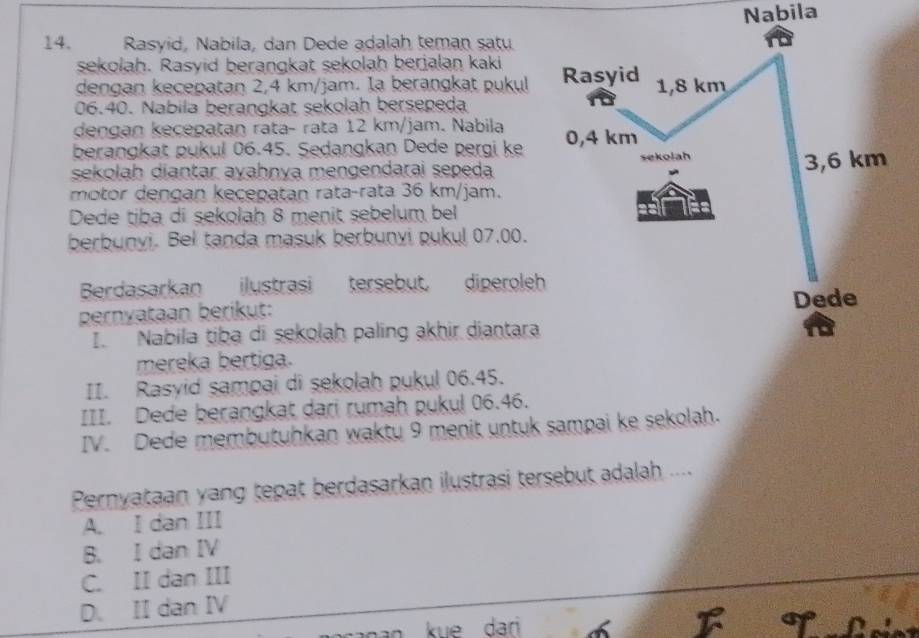 Nabila
14. Rasyid, Nabila, dan Dede adalah teman satu
sekolah. Rasyid berangkat sekolah berjalan kaki
dengan kecepatan 2,4 km/jam. Ia berangkat pukul
06.40. Nabila berangkat sekolah bersepeda
dengan kecepatan rata- rata 12 km/jam. Nabila
berangkat pukul 06.45. Sedangkan Dede pergi ke
sekolah diantar ayahnya mengendarai sepeda
motor dengan kecepatan rata-rata 36 km/jam.
Dede tiba di sekolah 8 menit sebelum bel
berbunyi. Bel tanda masuk berbunyi pukul 07.00.
Rasyid
1,8 km
0,4 km
sekolah
3,6 km
Dede
Berdasarkan ilustrasi tersebut, diperoleh
pernyataan berikut:
I. Nabila tiba di sekolah paling akhir diantara
mereka bertiga.
II. Rasyid sampai di sekolah pukul 06.45.
III. Dede berangkat dari rumah pukul 06.46.
IV. Dede membutuhkan waktu 9 menit untuk sampai ke sekolah.
Pernyataan yang tepat berdasarkan ilustrasi tersebut adalah ....
A. I dan III
B. I dan IV
C. II dan III
D. II dan IV
kue dari